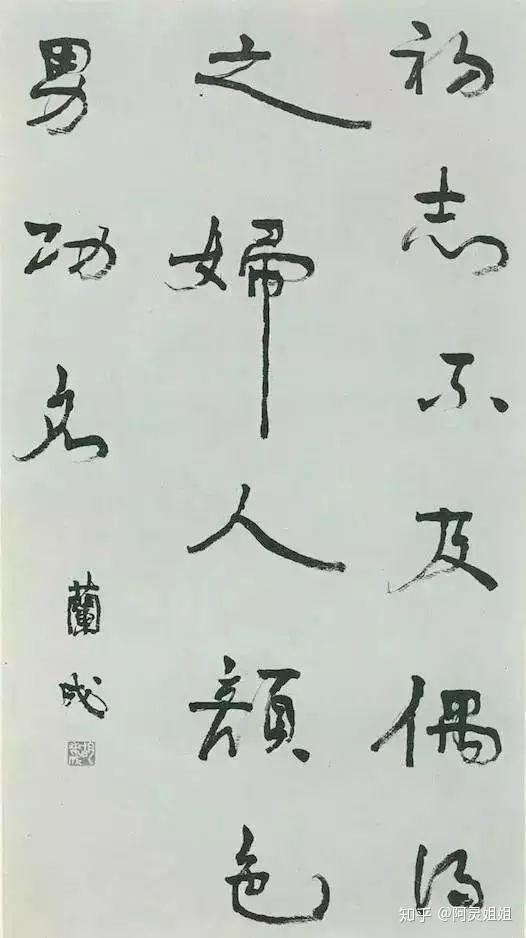 初志不及偶得
之婦人顏色
男功名
蘭成
知乎 @阿灵姐姐